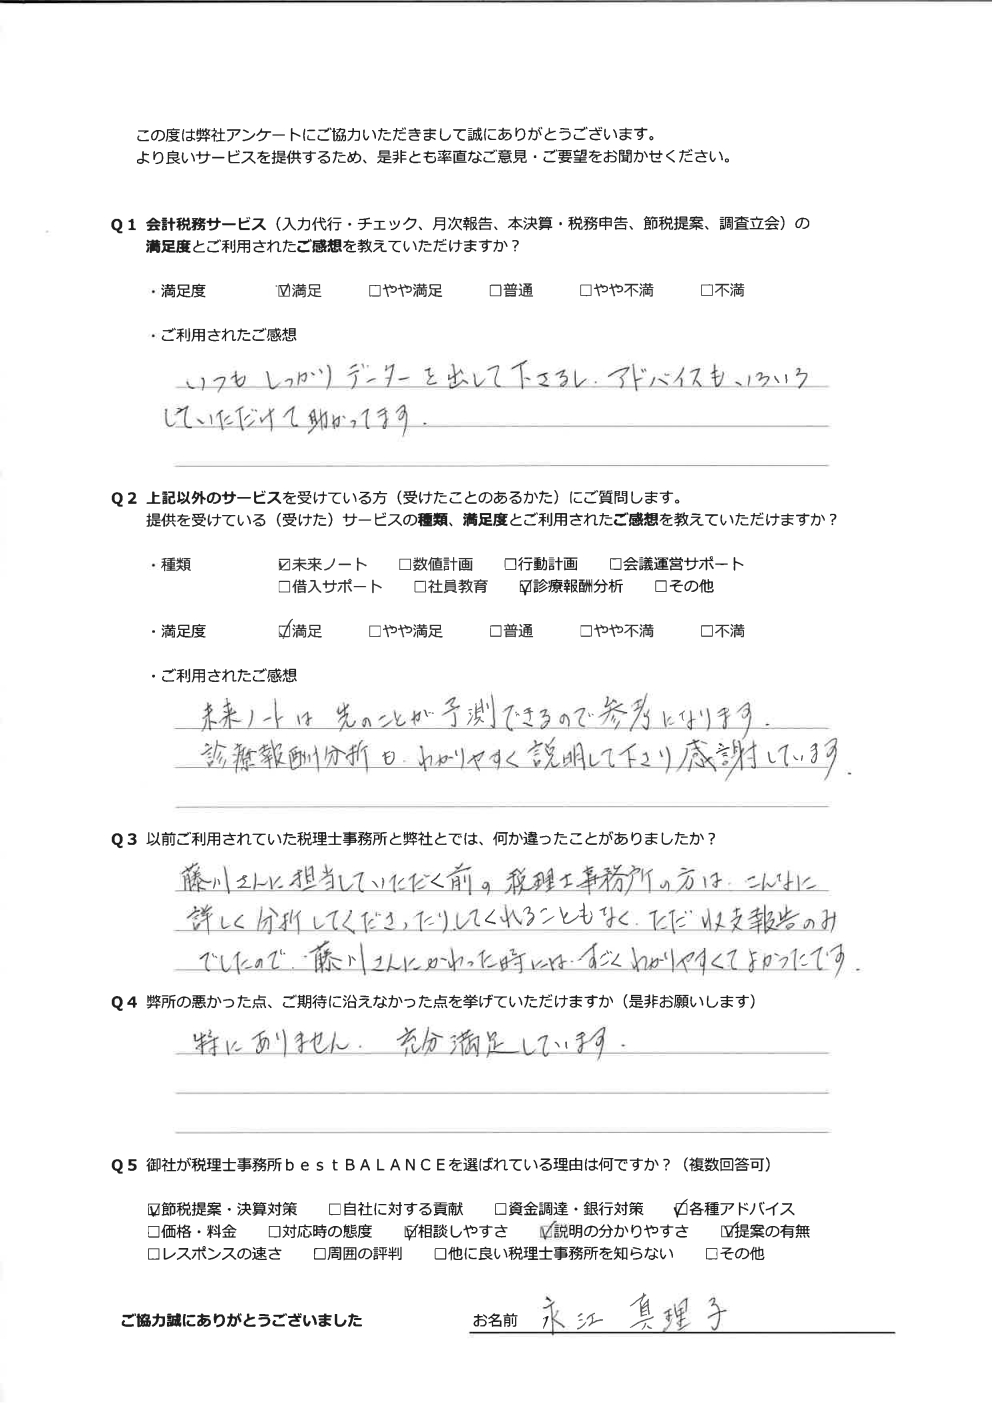 この度は弊社アンケートにご協力いただきまして誠にありがとうございます。
より良いサービスを提供するため、是非とも率直なご意見・ご要望をお聞かせください。
Q1 会計税務サービス（入力代行・チェック、月次報告、本決算・税務申告、節税提案、調査立会）の
満足度とご利用されたご感想を教えていただけますか？
・満足度 ☑満足 □やや満足 □普通 □やや不満 □不満
・ご利用されたご感想
いつもしっかりデーターを出して下さるし、アドバイスもいろいろ
していただけて助かってます.
Q2 上記以外のサービスを受けている方（受けたことのあるかた）にご質問します。
提供を受けている（受けた）サービスの種類、満足度とご利用されたご感想を教えていただけますか？
・種類 ☑未来ノート □数値計画 □行動計画 □会議運営サポート
□借入サポート □社員教育 ☑診療報酬分析 □その他
・満足度 ☑満足 □やや満足 □普通 □やや不満 □不満
・ご利用されたご感想
未来ノートは先のことが予測できるので参考になります.
診療報酬分析も、わかりやすく説明して下さり感謝しています.
Q3 以前ご利用されていた税理士事務所と弊社とでは、何か違ったことがありましたか？
藤川さんに担当していただく前の税理士事務所の方は、こんなに
詳しく分析してくださったりしてくれることもなく、ただ収支報告のみ
でしたので、藤川さんにかわった時には、すごくわかりやすくてよかったです.
Q4 弊所の悪かった点、ご期待に沿えなかった点を挙げていただけますか（是非お願いします）
特にありません. 充分満足しています.
Q5 御社が税理士事務所bestBALANCEを選ばれている理由は何ですか？（複数回答可）
☑節税提案・決算対策 □自社に対する貢献 □資金調達・銀行対策 ☑各種アドバイス
□価格・料金 □対応時の態度 ☑相談しやすさ ☑説明の分かりやすさ ☑提案の有無
□レスポンスの速さ □周囲の評判 □他に良い税理士事務所を知らない □その他
ご協力誠にありがとうございました お名前 永江 真理子